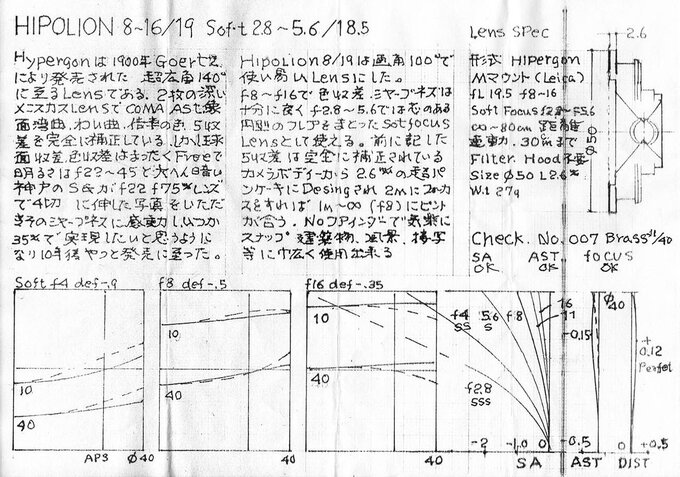 HIPOLION 8~16/19 Sof.t 2.8~5.6/18.5
Hypergonは1900年Goerz社
により発売された 超広角140°
に至るLensである。2枚の深い
メニスカスLensでCOMA AST 像
面湾曲.わい曲.倍率の色.5収
差を完全に補正している.しかし球
面収差.色収差はまったくFreeで
明るさはf22~45と大へん暗い
神戸のSさんがf22 f75%レンズ
で4切に伸した写真をいただ
きそのシャープネスに感動し.いつか
35%で実現したいと思うように
なり10年後やっと発売に至った。
Hipolion 8/19は画角100°で
使い易いLensにした。
f8~f16で色収差.シャープネスは
十分に良く f2.8~5.6では芯のある
円やかのフレアをまとったSoftfocus
Lensとして使える。前に記した
5収差は完全に補正されている
カメラボディーから2.6%の超パン
ケーキにDesingされ 2mにフォーカ
スをすれば 1m~∞(f8)にピント
が合う. Noファインダーで気楽に
スナップ 建築物.風景.接写
等に巾広く使用出来る
Lens Spec
形式 Hipergon
Mマウント(Leica)
fL 19.5 f8~16
Soft Focus f2.8~F5.6
∞~80cm 距離
連動.30cmまで
Filter. Hood不要
Size Ø50 L2.6%
W.t 27g
2.6
Ø50
Check. No.007 Brass 1/40
SA AST. focus
OK OK OK
Soft f4 def-.9
10
40
AP3 Ø40
f8 def-.5
10
40
40
f16 def-.35
10
40
40
f4 5.6 f8
SS S
16
11
f2.8
SSS
-2 -1.0 0
SA
Ø
40
-0.15
-0.5
AST
+
0.12
Perfet
0 +0.5
DIST